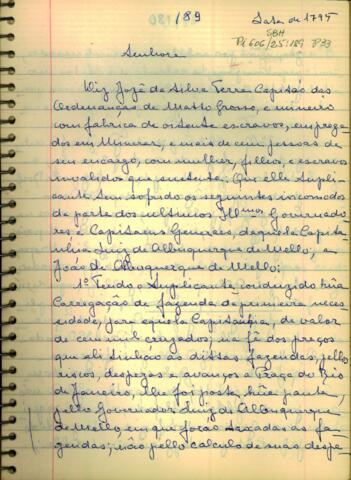 189
Data de 1795
SBH
Pl 606/25:189 P33
Senhora
Diz José da Silva Terra Capitão das
Ordenanças de Matto Grosso, e mineiro
com fabrica de oitenta escravos, emprega
dos em Minerar, e mais de cem pessoas de
seu encargo, com mulher, filhos, e escravos
invalidos que sustenta: Que elle Supli-
cante tem sofrido os seguintes incomodos
da parte dos ultimos Illmos Governado
res e Capitaens Generaes, daquela Capita-
nia Luiz de Albuquerque de Mello, e
João de Albuquerque de Mello:
1º Tendo o Suplicante conduzido hũa
Carregação de fazenda de primeira neces
sidade, para aquela Capitania, de valor
de cem mil cruzados, na fé dos preços
que ali tinhão as dittas fazendas, pellos
riscos, despezas e avanços a Praça do Rio
de Janeiro, lhe foi posta hũa pauta,
pello Governador Luiz de Albuquerque
de Mello, em que forão taxadas as fa-
zendas; não pello calculo de suas despe-